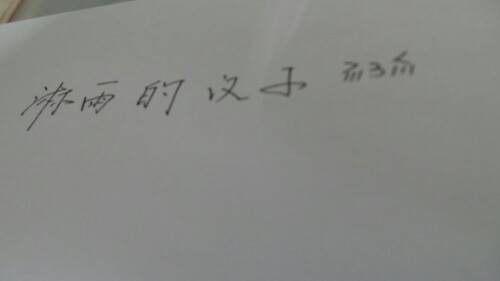 淋雨的汉子